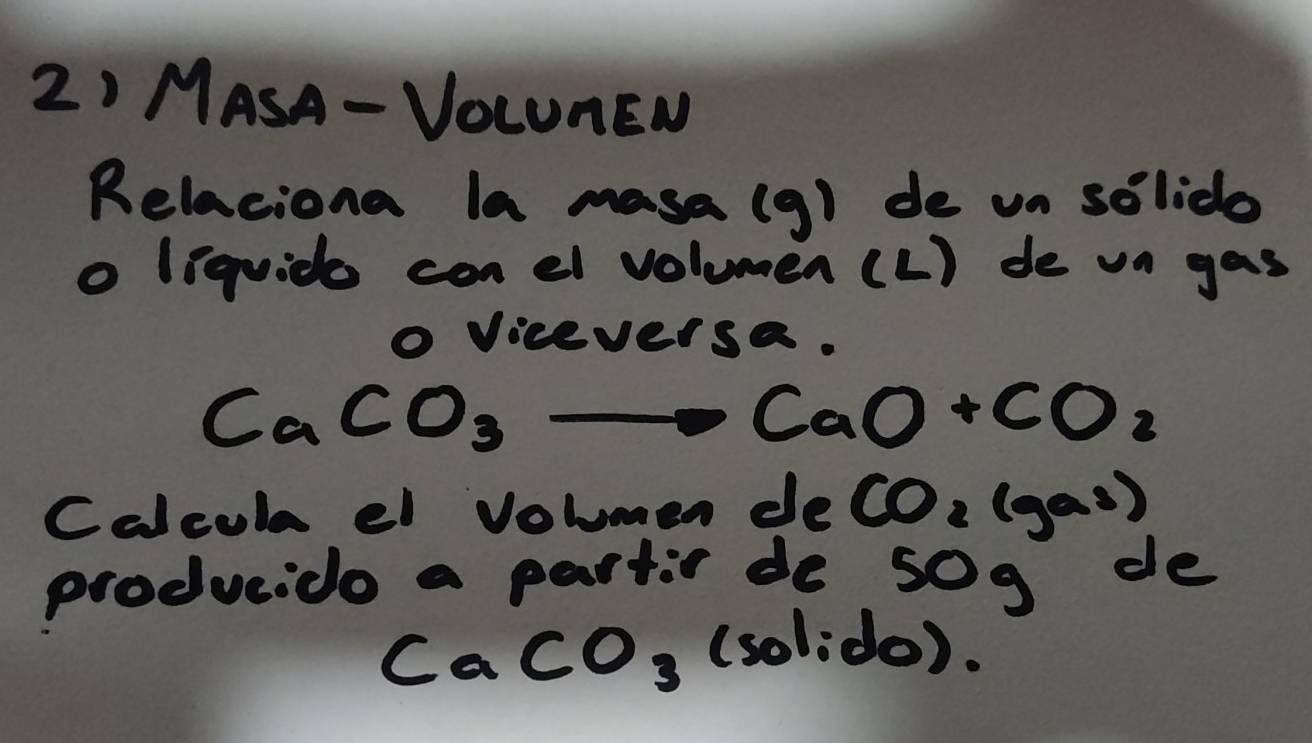 2) MASA - VOLUMEN
Relaciona la masa (g) de un sólido
o líquido con el volumen (L) de un gas
o viceversa.
CaCO₃ → CaO + CO₂
Calcula el volumen de CO₂ (gas)
producido a partir de 50g de
CaCO₃ (solido).